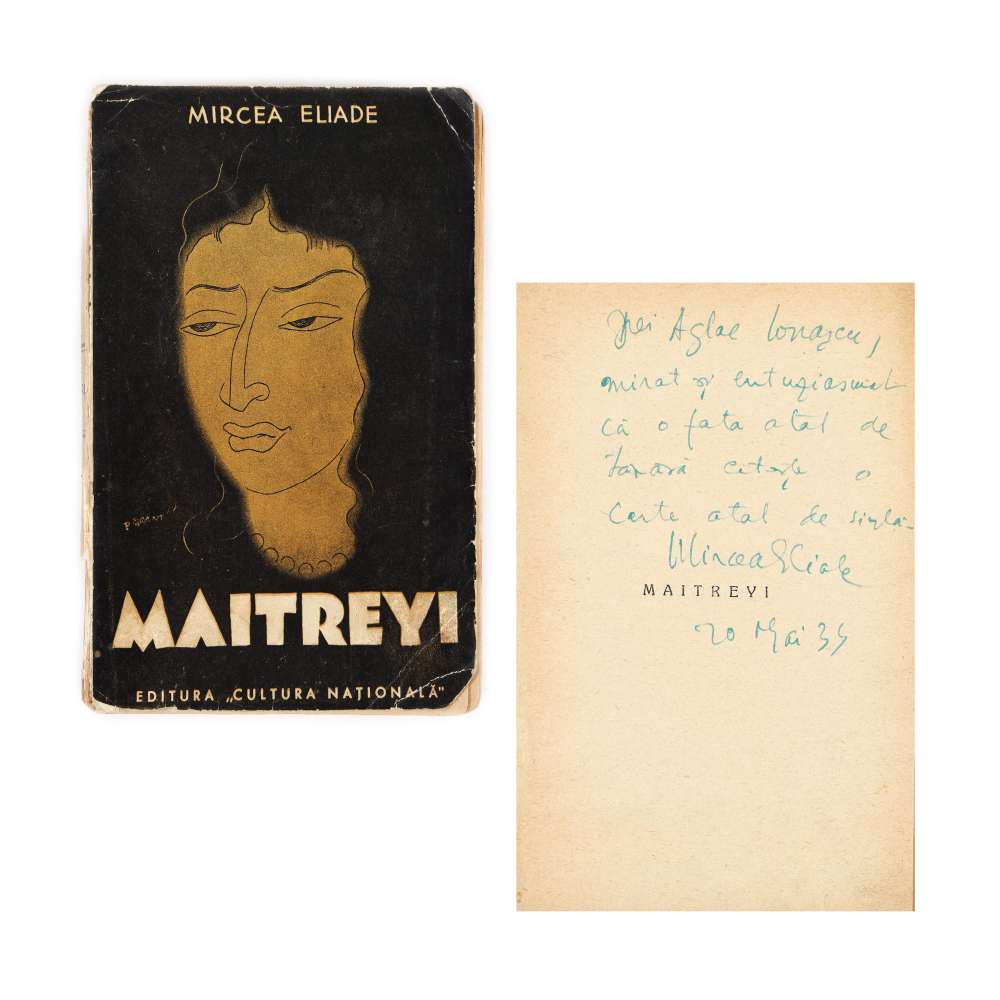 MIRCEA ELIADE
MAITREYI
EDITURA „CULTURA NAȚIONALĂ"
Aglae Ionașcu,
mirat și entuziasmat
că o fata atal de
citește o
carte atal de
Mircea Eliade
MAITREYI
20 Mai